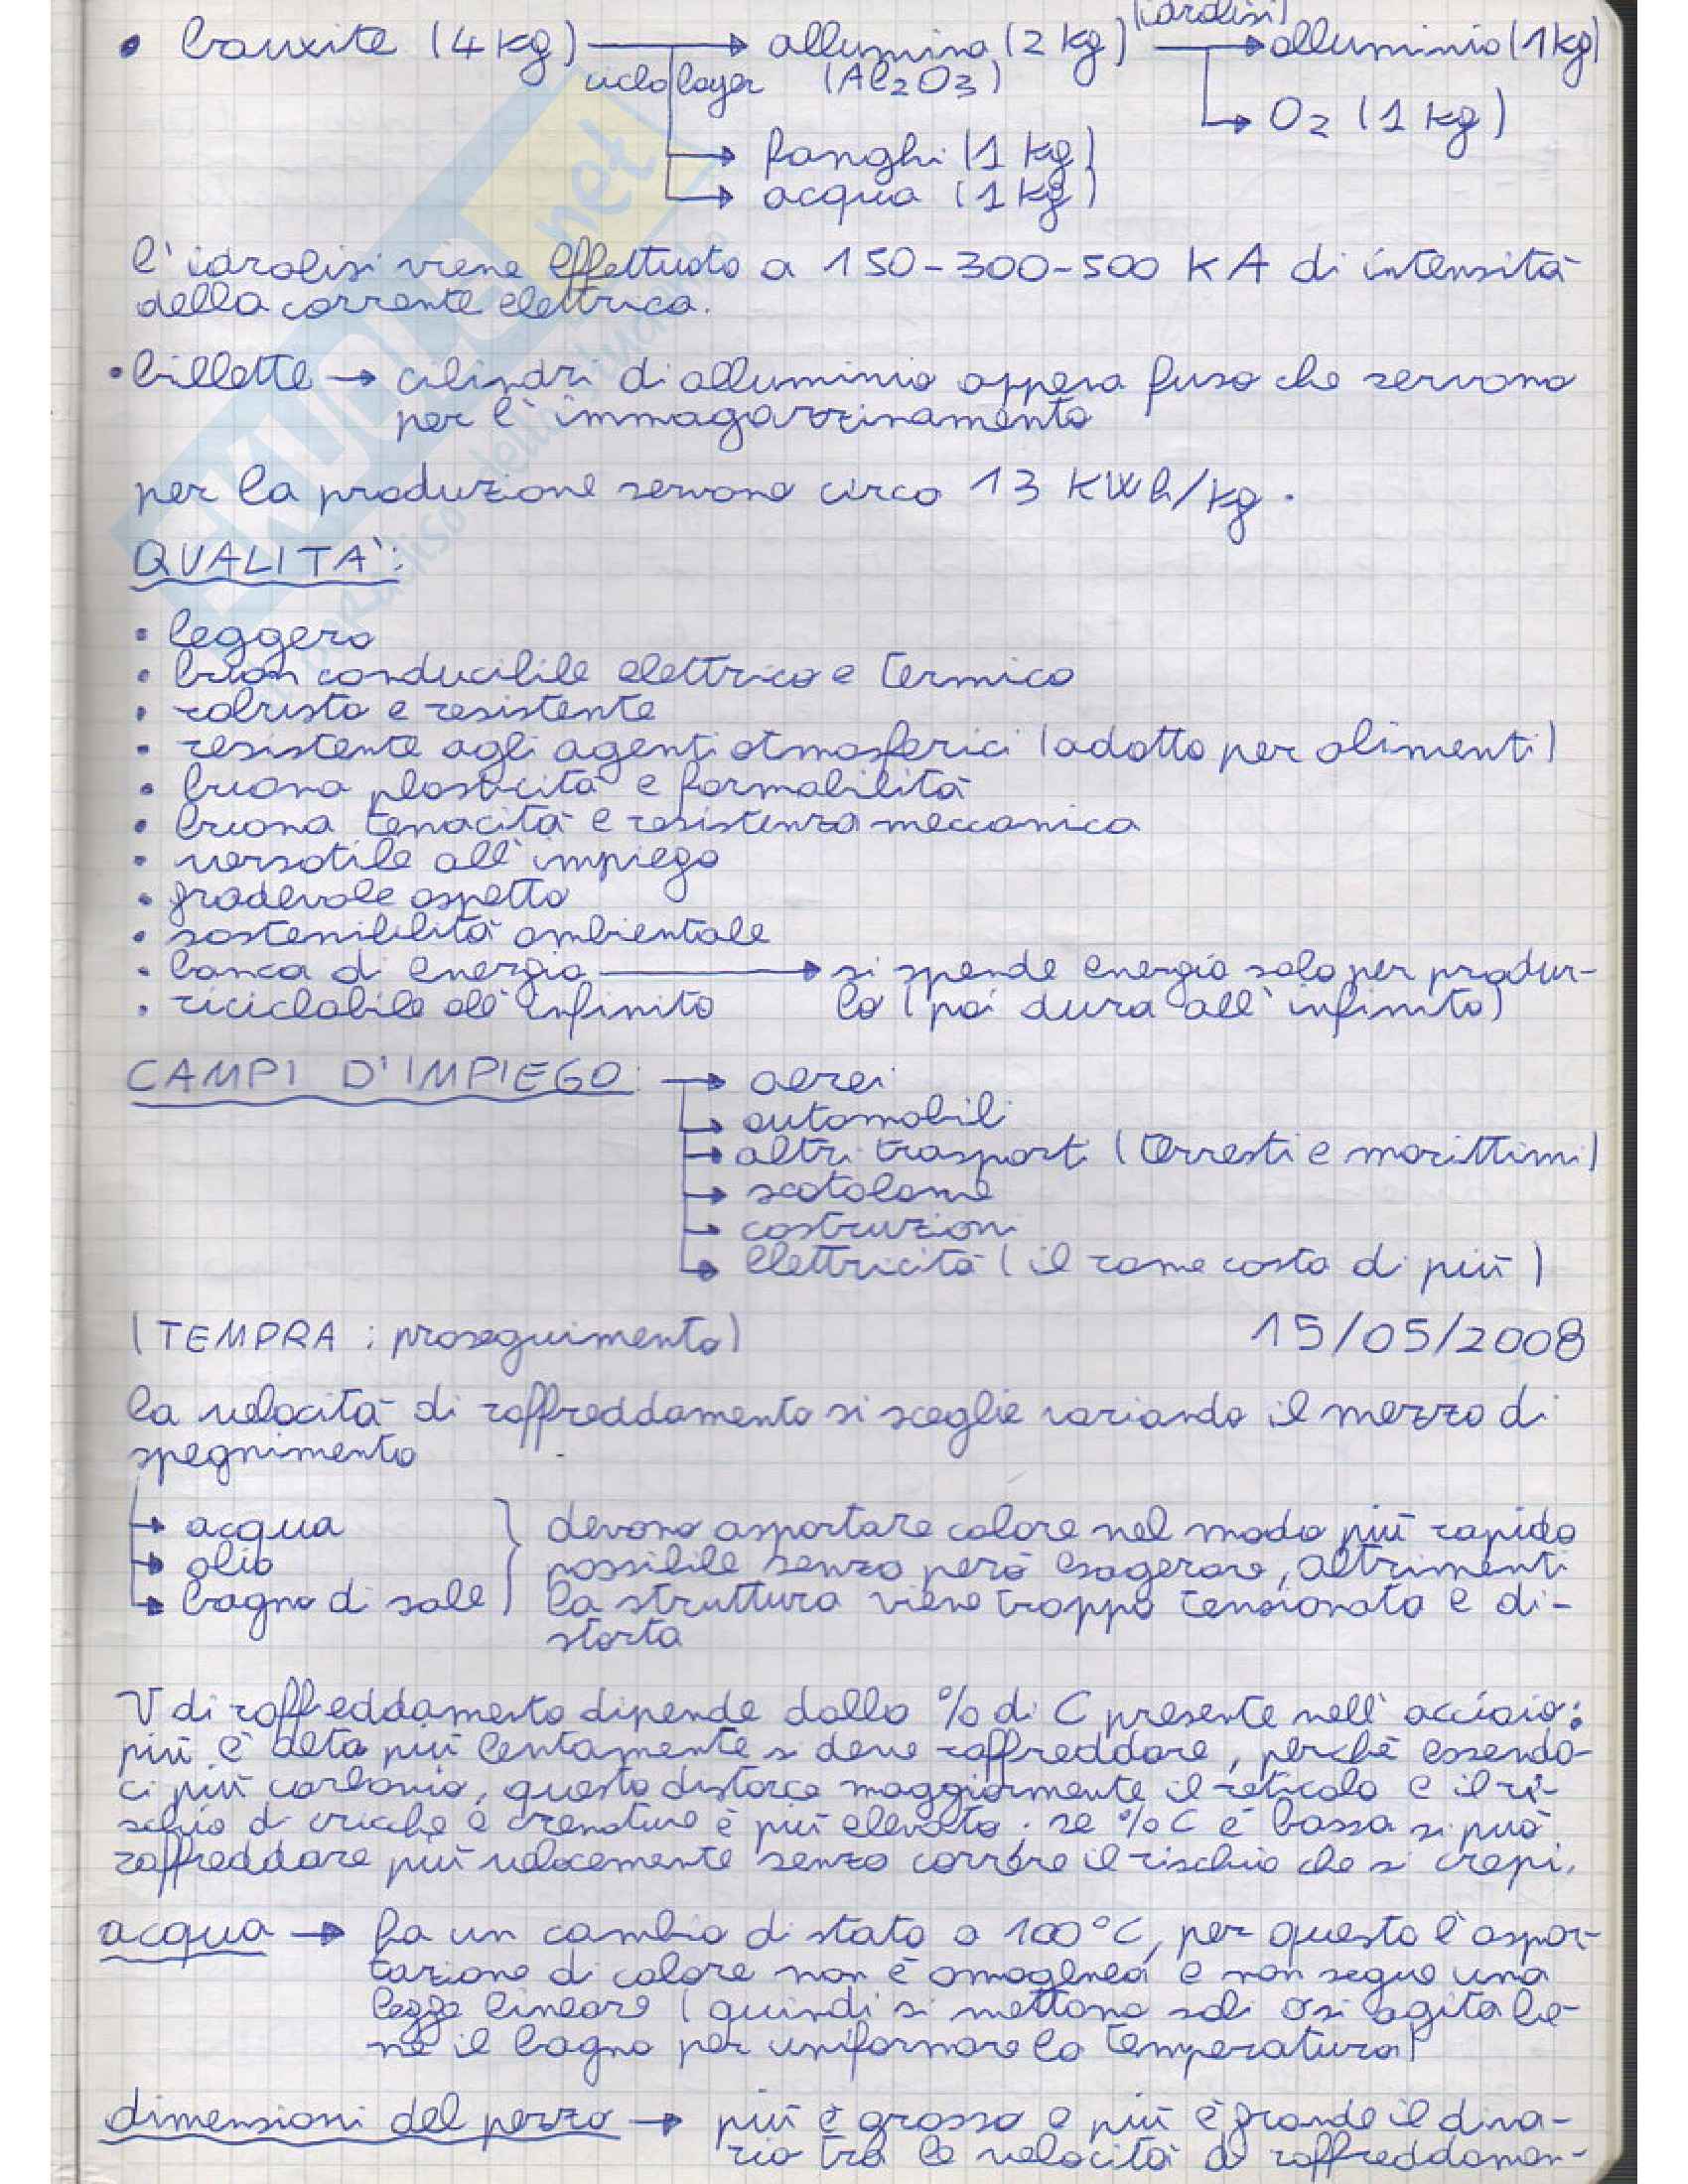 (idrolisi)
• bauxite (4 kg) → allumina (2 kg) → alluminio (1 kg)
ciclo bayer (Al2O3)
→ O2 (1 kg)
→ fanghi (1 kg)
→ acqua (1 kg)
l'idrolisi viene effettuata a 150-300-500 KA di intensità
della corrente elettrica.
• billette → cilindri di alluminio appena fuso che servono
per l'immagazzinamento
per la produzione servono circa 13 KWh/kg.
QUALITA':
• leggero
• buon conducibile elettrico e termico
• robusto e resistente
• resistente agli agenti atmosferici (adatto per alimenti)
• buona plasticità e formabilità
• buona tenacità e resistenza meccanica
• versatile all'impiego
• gradevole aspetto
• sostenibilità ambientale
• banca di energia → si spende energia solo per produr-
• riciclabile all'infinito lo (poi dura all'infinito)
CAMPI D'IMPIEGO: → aerei
→ automobili
→ altri trasporti (terresti e marittimi)
→ scatolame
→ costruzioni
→ elettricità (il rame costa di più)
(TEMPRA: proseguimento) 15/05/2008
la velocità di raffreddamento si sceglie variando il mezzo di
spegnimento
→ acqua } devono asportare calore nel modo più rapido
→ olio possibile senza però esagerare, altrimenti
→ bagno di sale la struttura viene troppo tensionata e di-
storta
V di raffreddamento dipende dalla % di C presente nell'acciaio:
più è alta più lentamente si deve raffreddare, perché essendo-
ci più carbonio, questo distorce maggiormente il reticolo e il ri-
schio di cricche e crenature è più elevato. se % C è bassa si può
raffreddare più velocemente senza correre il rischio che si crepi.
acqua → ha un cambio di stato a 100°C, per questo l'aspor-
tazione di calore non è omogenea e non segue una
legge lineare (quindi si mettono sali o si agita be-
ne il bagno per uniformare la temperatura)
dimensioni del pezzo → più è grosso e più è grande il diva-
rio tra le velocità di raffreddamen-
SKUOLA.net